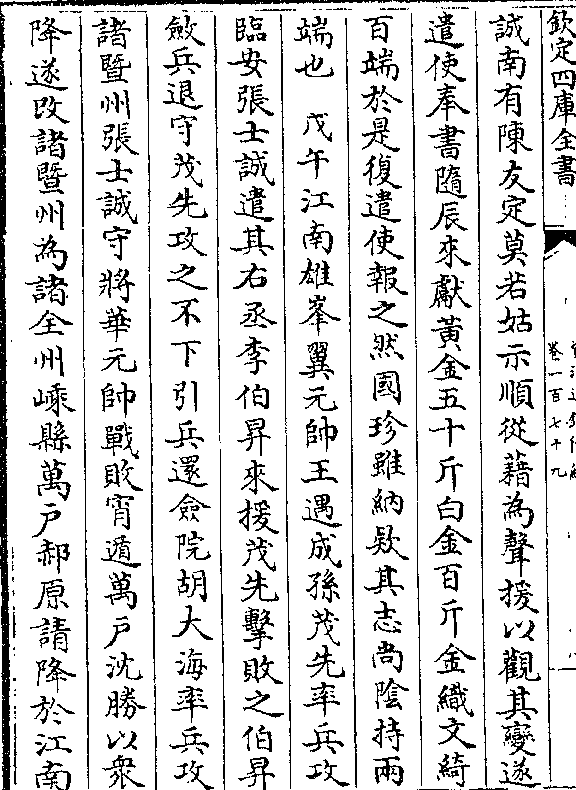 欽定四庫全書
卷一百七十九
誠南有陳友定莫若姑示順從藉為聲援以觀其變遂
遣使奉書隨辰來獻黃金五十斤白金百斤金織文綺
百端於是復遣使報之然國珍雖納欵其志尚陰持兩
端也　戊午江南雄峯翼元帥王遇成孫茂先率兵攻
臨安張士誠遣其右丞李伯昇來援茂先擊敗之伯昇
斂兵退守茂先攻之不下引兵還僉院胡大海率兵攻
諸暨州張士誠守將華元帥戰敗宵遁萬戶沈勝以衆
降遂改諸暨州為諸全州嵊縣萬戶郝原請降於江南